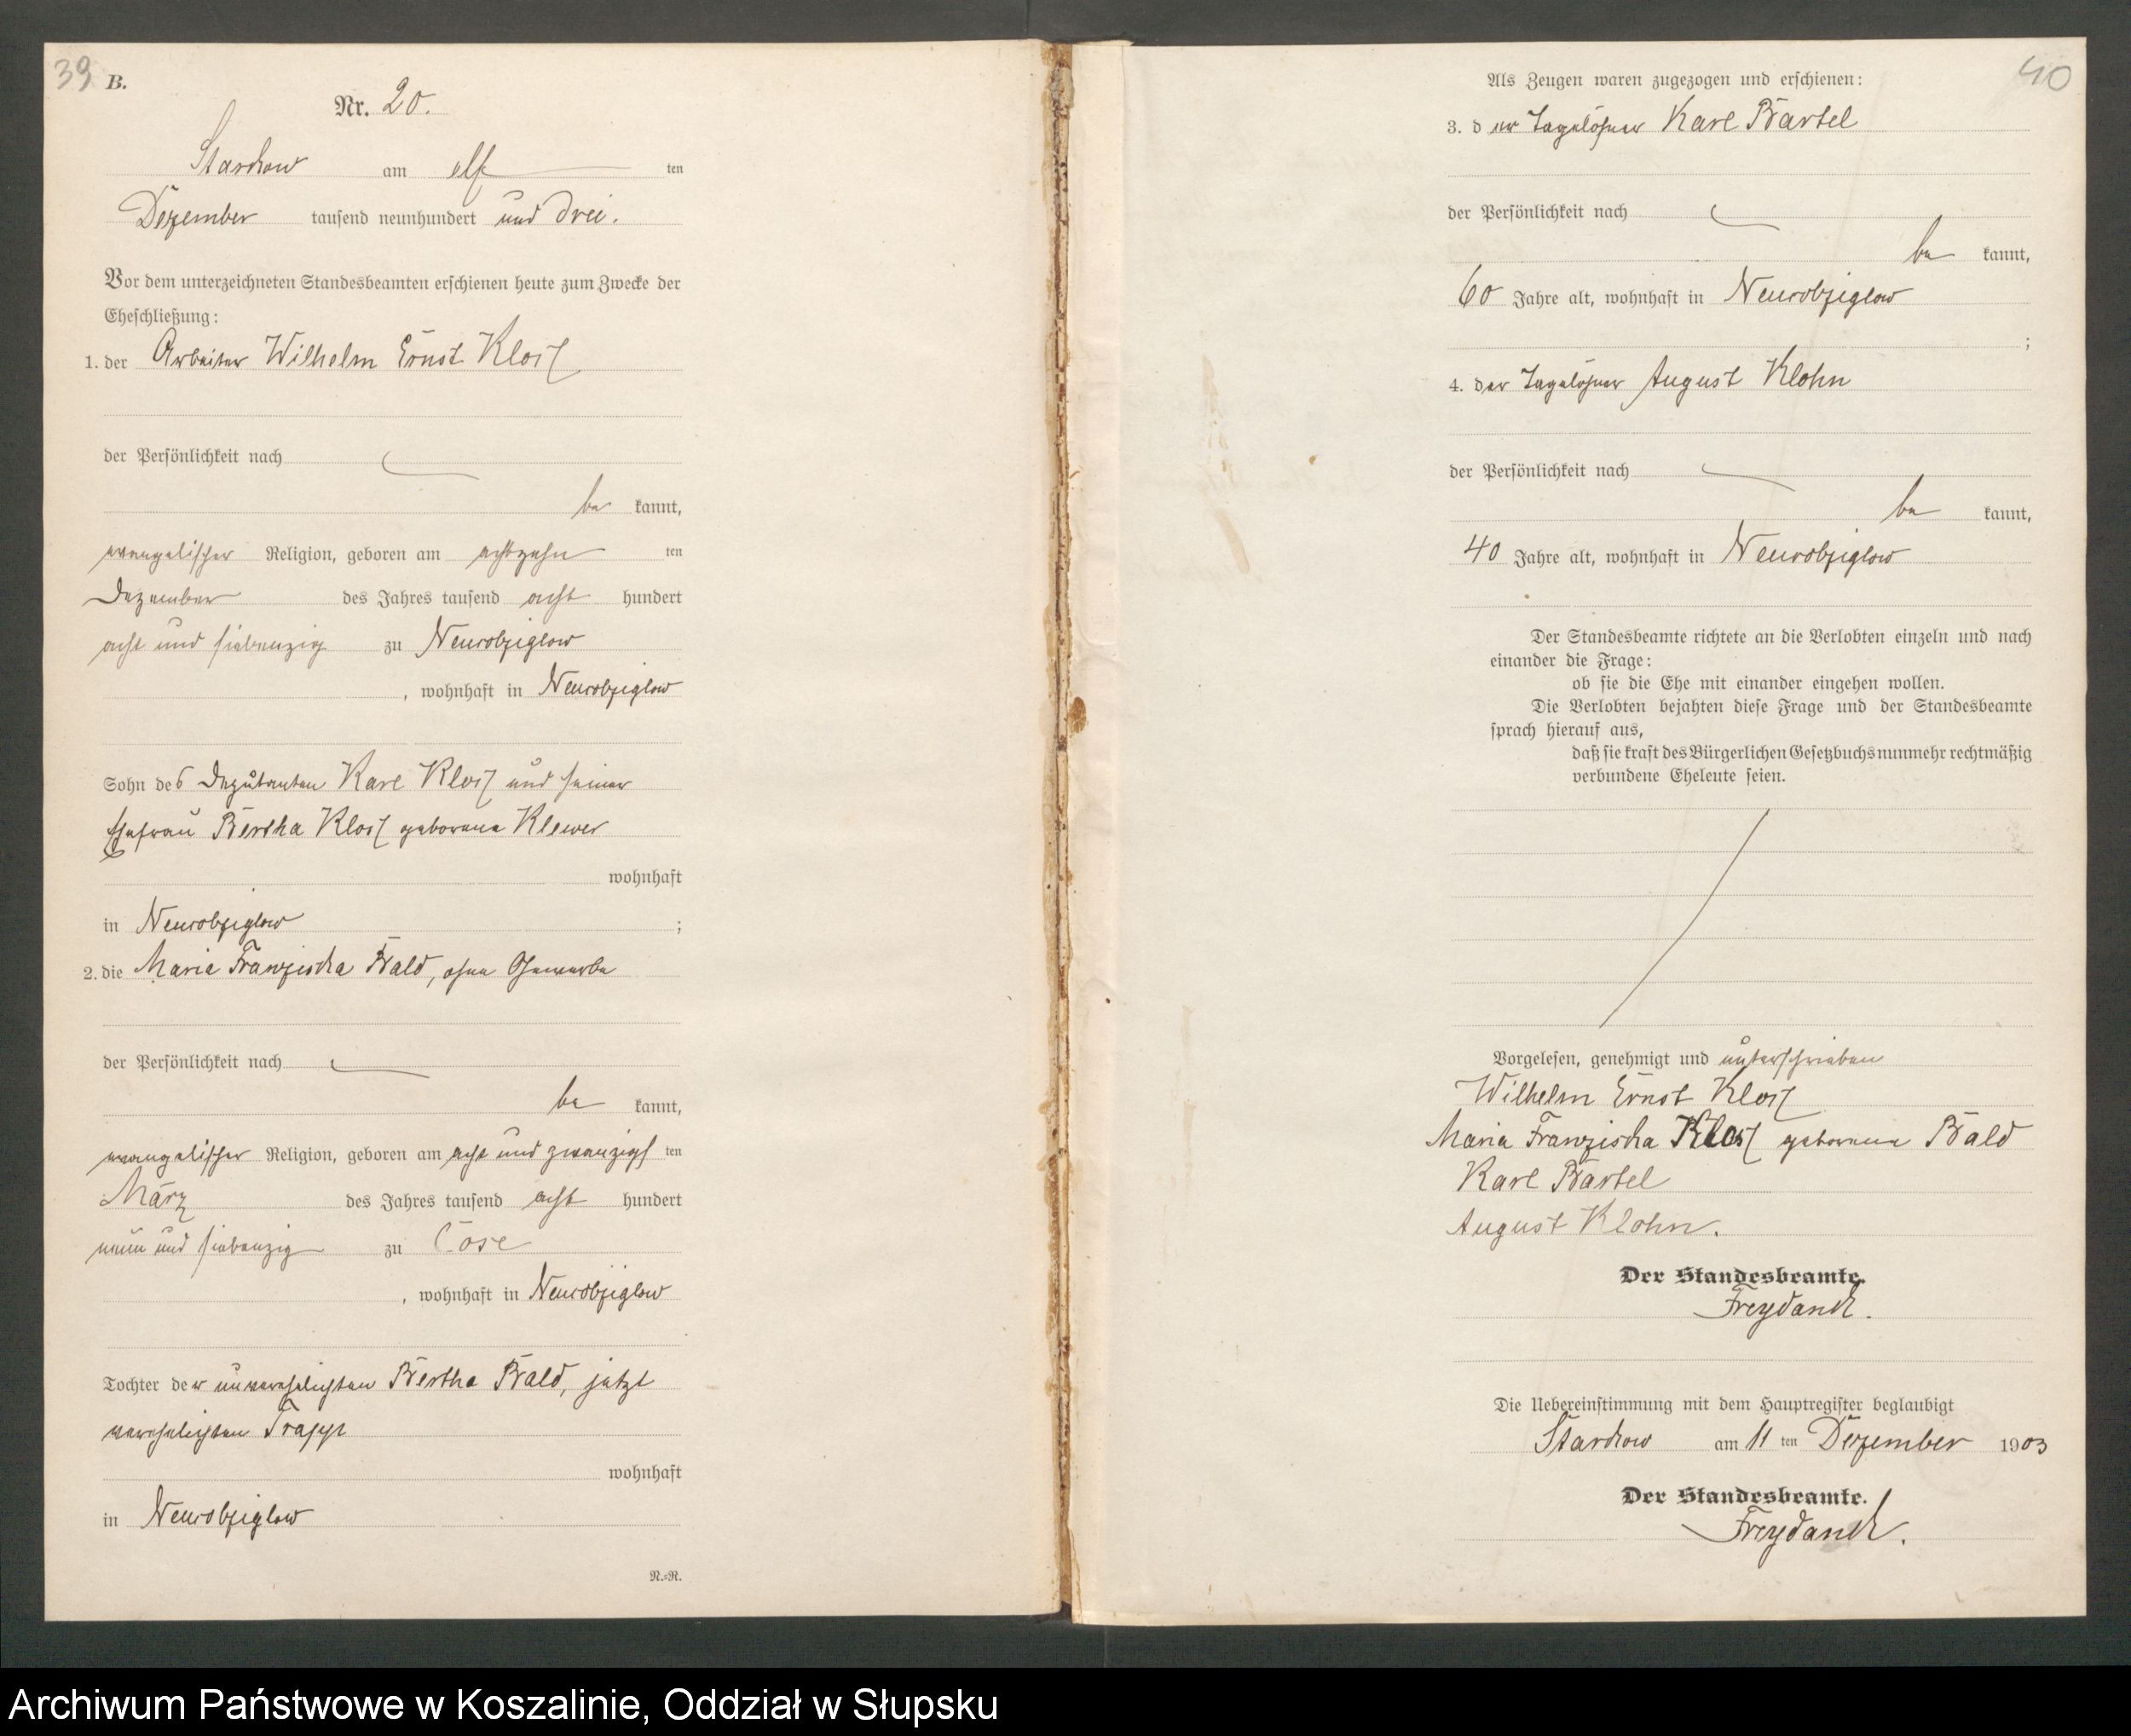 39
B.
Nr. 20.
Starckow am elf ten
Dezember tausend neunhundert und drei.
Vor dem unterzeichneten Standesbeamten erschienen heute zum Zwecke der
Eheschließung:
1. der Arbeiter Wilhelm Ernst Kloß
der Persönlichkeit nach
be kannt,
evangelischer Religion, geboren am achtzehn ten
Dezember des Jahres tausend acht hundert
acht und siebenzig zu Neurobziglow
, wohnhaft in Neurobziglow
Sohn des Deputanten Karl Kloß und seiner
Ehefrau Bertha Kloß geborene Klewer
wohnhaft
in Neurobziglow ;
2. die Maria Franziska Bald, ohne Gewerbe
der Persönlichkeit nach
be kannt,
evangelischer Religion, geboren am acht und zwanzigs ten
März des Jahres tausend acht hundert
neun und siebenzig zu Cose
, wohnhaft in Neurobziglow
Tochter der unverehelichten Bertha Bald, jetzt
verehelichten Trapp
wohnhaft
in Neurobziglow
N.=R.
40
Als Zeugen waren zugezogen und erschienen:
3. der Tagelöhner Karl Bartel
der Persönlichkeit nach
be kannt,
60 Jahre alt, wohnhaft in Neurobziglow
;
4. der Tagelöhner August Klohn
der Persönlichkeit nach
be kannt,
40 Jahre alt, wohnhaft in Neurobziglow
Der Standesbeamte richtete an die Verlobten einzeln und nach
einander die Frage:
ob sie die Ehe mit einander eingehen wollen.
Die Verlobten bejahten diese Frage und der Standesbeamte
sprach hierauf aus,
daß sie kraft des Bürgerlichen Gesetzbuchs nunmehr rechtmäßig
verbundene Eheleute seien.
Vorgelesen, genehmigt und unterschrieben
Wilhelm Ernst Kloß
Maria Franziska Kloß geborene Bald
Karl Bartel
August Klohn.
Der Standesbeamte.
Freydanck.
Die Uebereinstimmung mit dem Hauptregister beglaubigt
Starckow am 11 ten Dezember 1903
Der Standesbeamte.
Freydanck.
Archiwum Państwowe w Koszalinie, Oddział w Słupsku